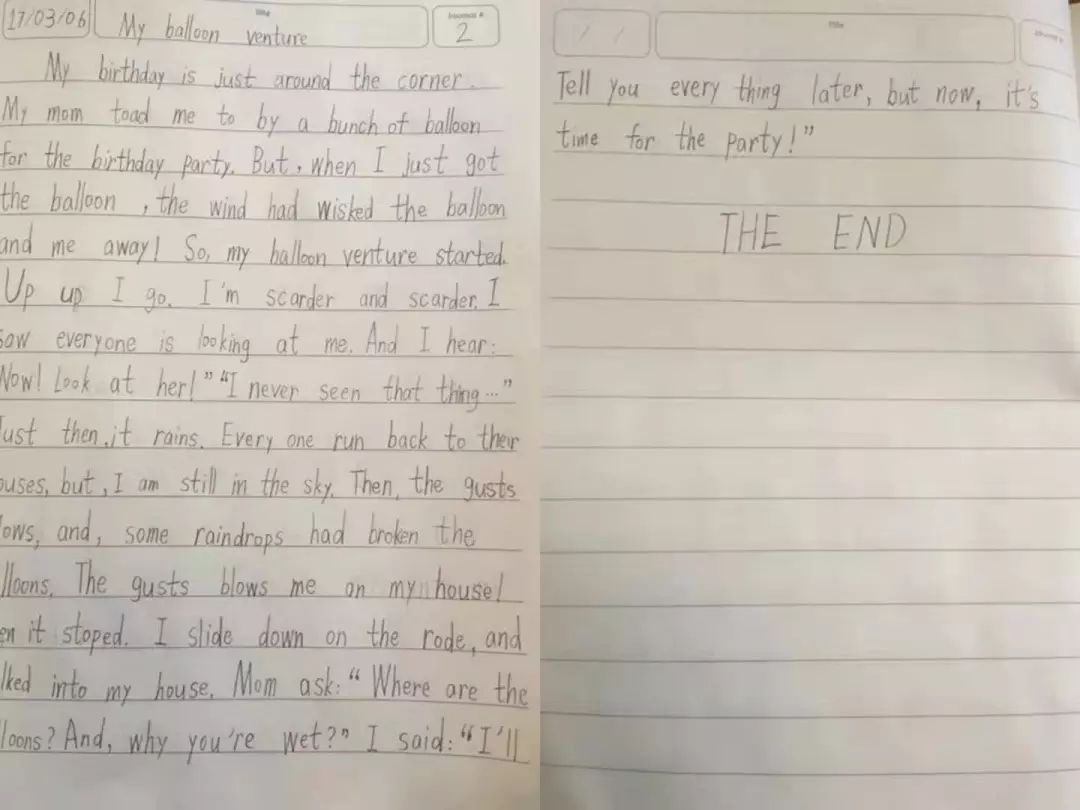 17/03/06
Title
My balloon venture
Journal #
2
My birthday is just around the corner.
My mom toad me to by a bunch of balloon
for the birthday party. But, when I just got
the balloon, the wind had wisked the balloon
and me away! So, my balloon venture started.
Up up I go. I'm scarder and scarder. I
saw everyone is looking at me. And I hear:
Wow! Look at her!" "I never seen that thing..."
Just then, it rains. Every one run back to their
ouses, but, I am still in the sky. Then, the gusts
lows, and, some raindrops had broken the
lloons. The gusts blows me on my house!
en it stoped. I slide down on the rode, and
lked into my house. Mom ask: "Where are the
lloons? And, why you're wet?" I said: "I'll
Title
Journal #
Tell you every thing later, but now, it's
time for the party!"
THE END